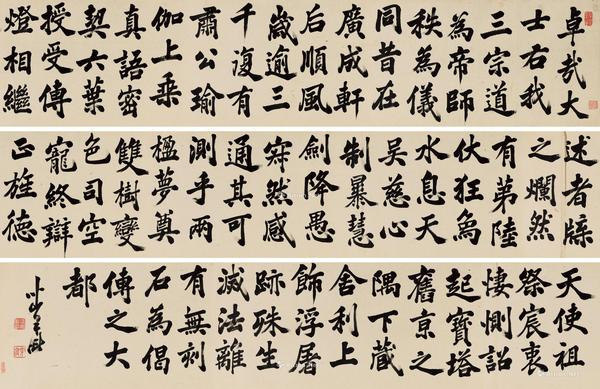 卓哉大
士右我
三宗道
為帝師
秩為儀
同昔在
廣成軒
后順風
歲逾三
千復有
肅公瑜
伽上乘
真語密
契六葉
授受傳
燈相繼
述者牒
之爛然
有第陸
伏狂烏
水息天
吳慈心
制暴慧
劍降愚
寂然感
通其可
測乎兩
楹夢奠
雙樹變
色司空
寵終辯
正旌德
天使祖
祭宸衷
悽惻詔
起寶塔
舊京之
隅下藏
舍利上
飾浮屠
跡殊生
滅法離
有無刻
石為偈
傳之大
都